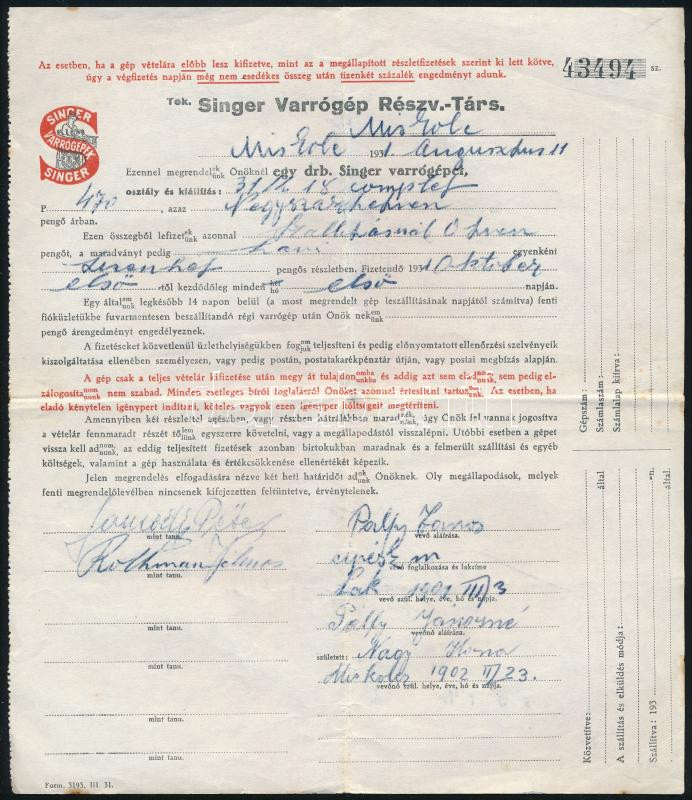 Az esetben, ha a gép vételára előbb lesz kifizetve, mint az a megállapított részletfizetések szerint ki lett kötve,
úgy a végfizetés napján még nem esedékes összeg után tizenkét százalék engedményt adunk.
43494 sz.
Tek. Singer Varrógép Részv.-Társ.
SINGER
VARRÓGÉPEK
SINGER
Miskolc
Miskolc 1931 Augusztus 11
Ezennel megrendel ek ünk Önöknél egy drb. Singer varrógépet,
osztály és kiállítás: 31/2 18 complet
P 470, azaz Négyszázhetven
pengő árban.
Ezen összegből lefizet ek ünk azonnal Szállításnál Ötven
pengőt, a maradványt pedig havi egyenként
pengős részletben. Fizetendő 1931 Október
első -től kezdődőleg minden hét hó első napján.
Egy által am unk legkésőbb 14 napon belül (a most megrendelt gép leszállításának napjától számítva) fenti
fióküzletükbe fuvarmentesen beszállítandó régi varrógép után Önök nek em ünk
pengő árengedményt engedélyeznek.
A fizetéseket közvetlenül üzlethelyiségükben fog om juk teljesíteni és pedig előnyomatott ellenőrzési szelvények
kiszolgáltatása ellenében személyesen, vagy pedig postán, postatakarékpénztár útján, vagy postai megbízás alapján.
A gép csak a teljes vételár kifizetése után megy át tulajdon omba unkba és addig azt sem elad nom nunk, sem pedig el-
zálogosíta nom nunk nem szabad. Minden esetleges bírói foglalásról Önöket azonnal értesíteni tartoz om unk. Az esetben, ha
eladó kénytelen igénypert indítani, köteles vagyok ezen igényper költségeit megtéríteni.
Amennyiben két részlettel egészben, vagy részben hátralékban marad nék, nánk, úgy Önök fel vannak jogosítva
a vételár fennmaradt részét tő lem lünk egyszerre követelni, vagy a megállapodástól visszalépni. Utóbbi esetben a gépet
vissza kell ad nom, nunk, az eddig teljesített fizetések azonban birtokukban maradnak és a felmerült szállítási és egyéb
költségek, valamint a gép használata és értékcsökkenése ellenértékét képezik.
Jelen megrendelés elfogadására nézve két heti határidőt ad ok unk Önöknek. Oly megállapodások, melyek
fenti megrendelőlevélben nincsenek kifejezetten feltüntetve, érvénytelenek.
mint tanu.
Pálfy János
vevő aláírása.
Rothman Vilmos
mint tanu.
cipész m
vevő foglalkozása és lakcíme
Lak 1901 III/3
vevő szül. helye, éve, hó és napja.
mint tanu.
Pálfy Jánosné
vevőnő aláírása.
született: Nagy Ilona
mint tanu.
Miskolc 1902 II/23.
vevőnő szül. helye, éve, hó és napja.
mint tanu.
mint tanu.
Form. 3193. III. 31.
Gépszám:
Számlaszám:
Számlalap kiírva:
Közvetítve: által
A szállítás és elküldés módja:
Szállítva: 193 -n. által